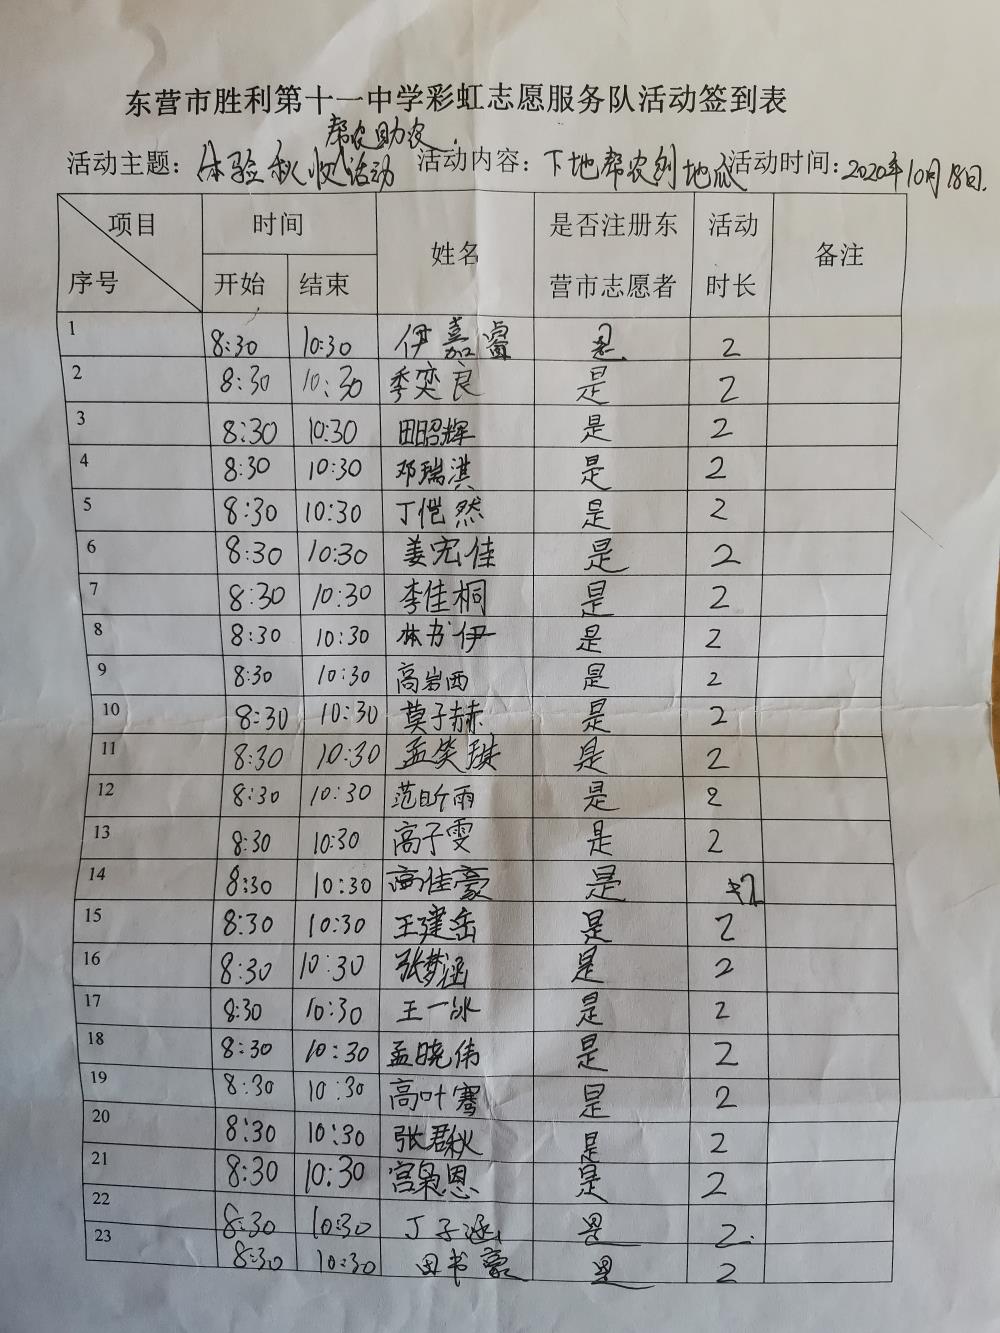 东营市胜利第十一中学彩虹志愿服务队活动签到表
帮农助农
活动主题：体验秋收活动 活动内容：下地帮农刨地瓜 活动时间：2020年10月18日.
项目 时间 姓名 是否注册东营市志愿者 活动时长 备注
序号 开始 结束
1 8:30 10:30 伊嘉睿 是 2
2 8:30 10:30 季奕良 是 2
3 8:30 10:30 田昭辉 是 2
4 8:30 10:30 邓瑞淇 是 2
5 8:30 10:30 丁恺然 是 2
6 8:30 10:30 姜宏佳 是 2
7 8:30 10:30 李佳桐 是 2
8 8:30 10:30 林书伊 是 2
9 8:30 10:30 高岩西 是 2
10 8:30 10:30 莫子赫 是 2
11 8:30 10:30 孟笑琎 是 2
12 8:30 10:30 范昕雨 是 2
13 8:30 10:30 高子雯 是 2
14 8:30 10:30 高佳豪 是 2
15 8:30 10:30 王建岳 是 2
16 8:30 10:30 张梦涵 是 2
17 8:30 10:30 王一冰 是 2
18 8:30 10:30 孟晓伟 是 2
19 8:30 10:30 高叶骞 是 2
20 8:30 10:30 张君秋 是 2
21 8:30 10:30 宫枭恩 是 2
22 8:30 10:30 丁子涵 是 2
23 8:30 10:30 田书豪 是 2